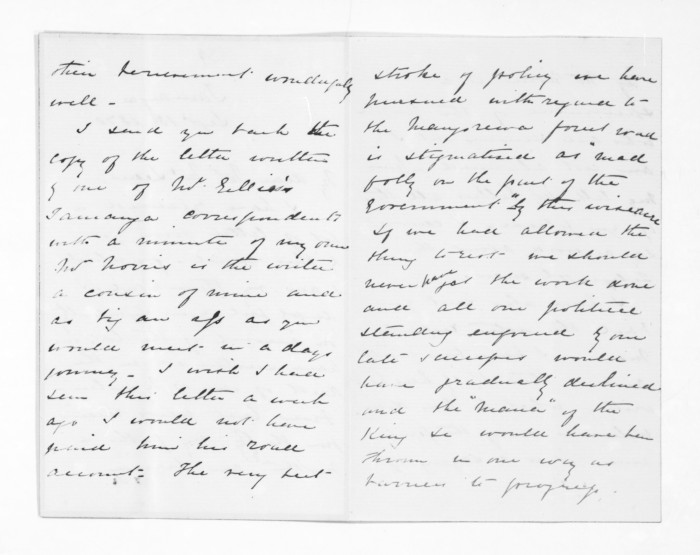 their Government wonderfully
well -
I send you back the
copy of the letter written
by one of Mr. Gillies's
Tauranga correspondents
with a minute of my own
Mr Norris is the writer
a cousin of mine and
as big an ass as you
would meet in a days
journey - I wish I had
seen this letter a week
ago I would not have
paid him his road
account - The very best
stroke of policy we have
pursued with regard to
the Mangorewa forest road
is stigmatised as "mad
folly on the part of the
Government" by this wiseacre
If we had allowed the
thing to rest we should
never have got the work done
and all our political
standing enforced by our
late successes would
have gradually declined
and the "mana" of the
King &c would have been
thrown in our way as
barriers to progress.